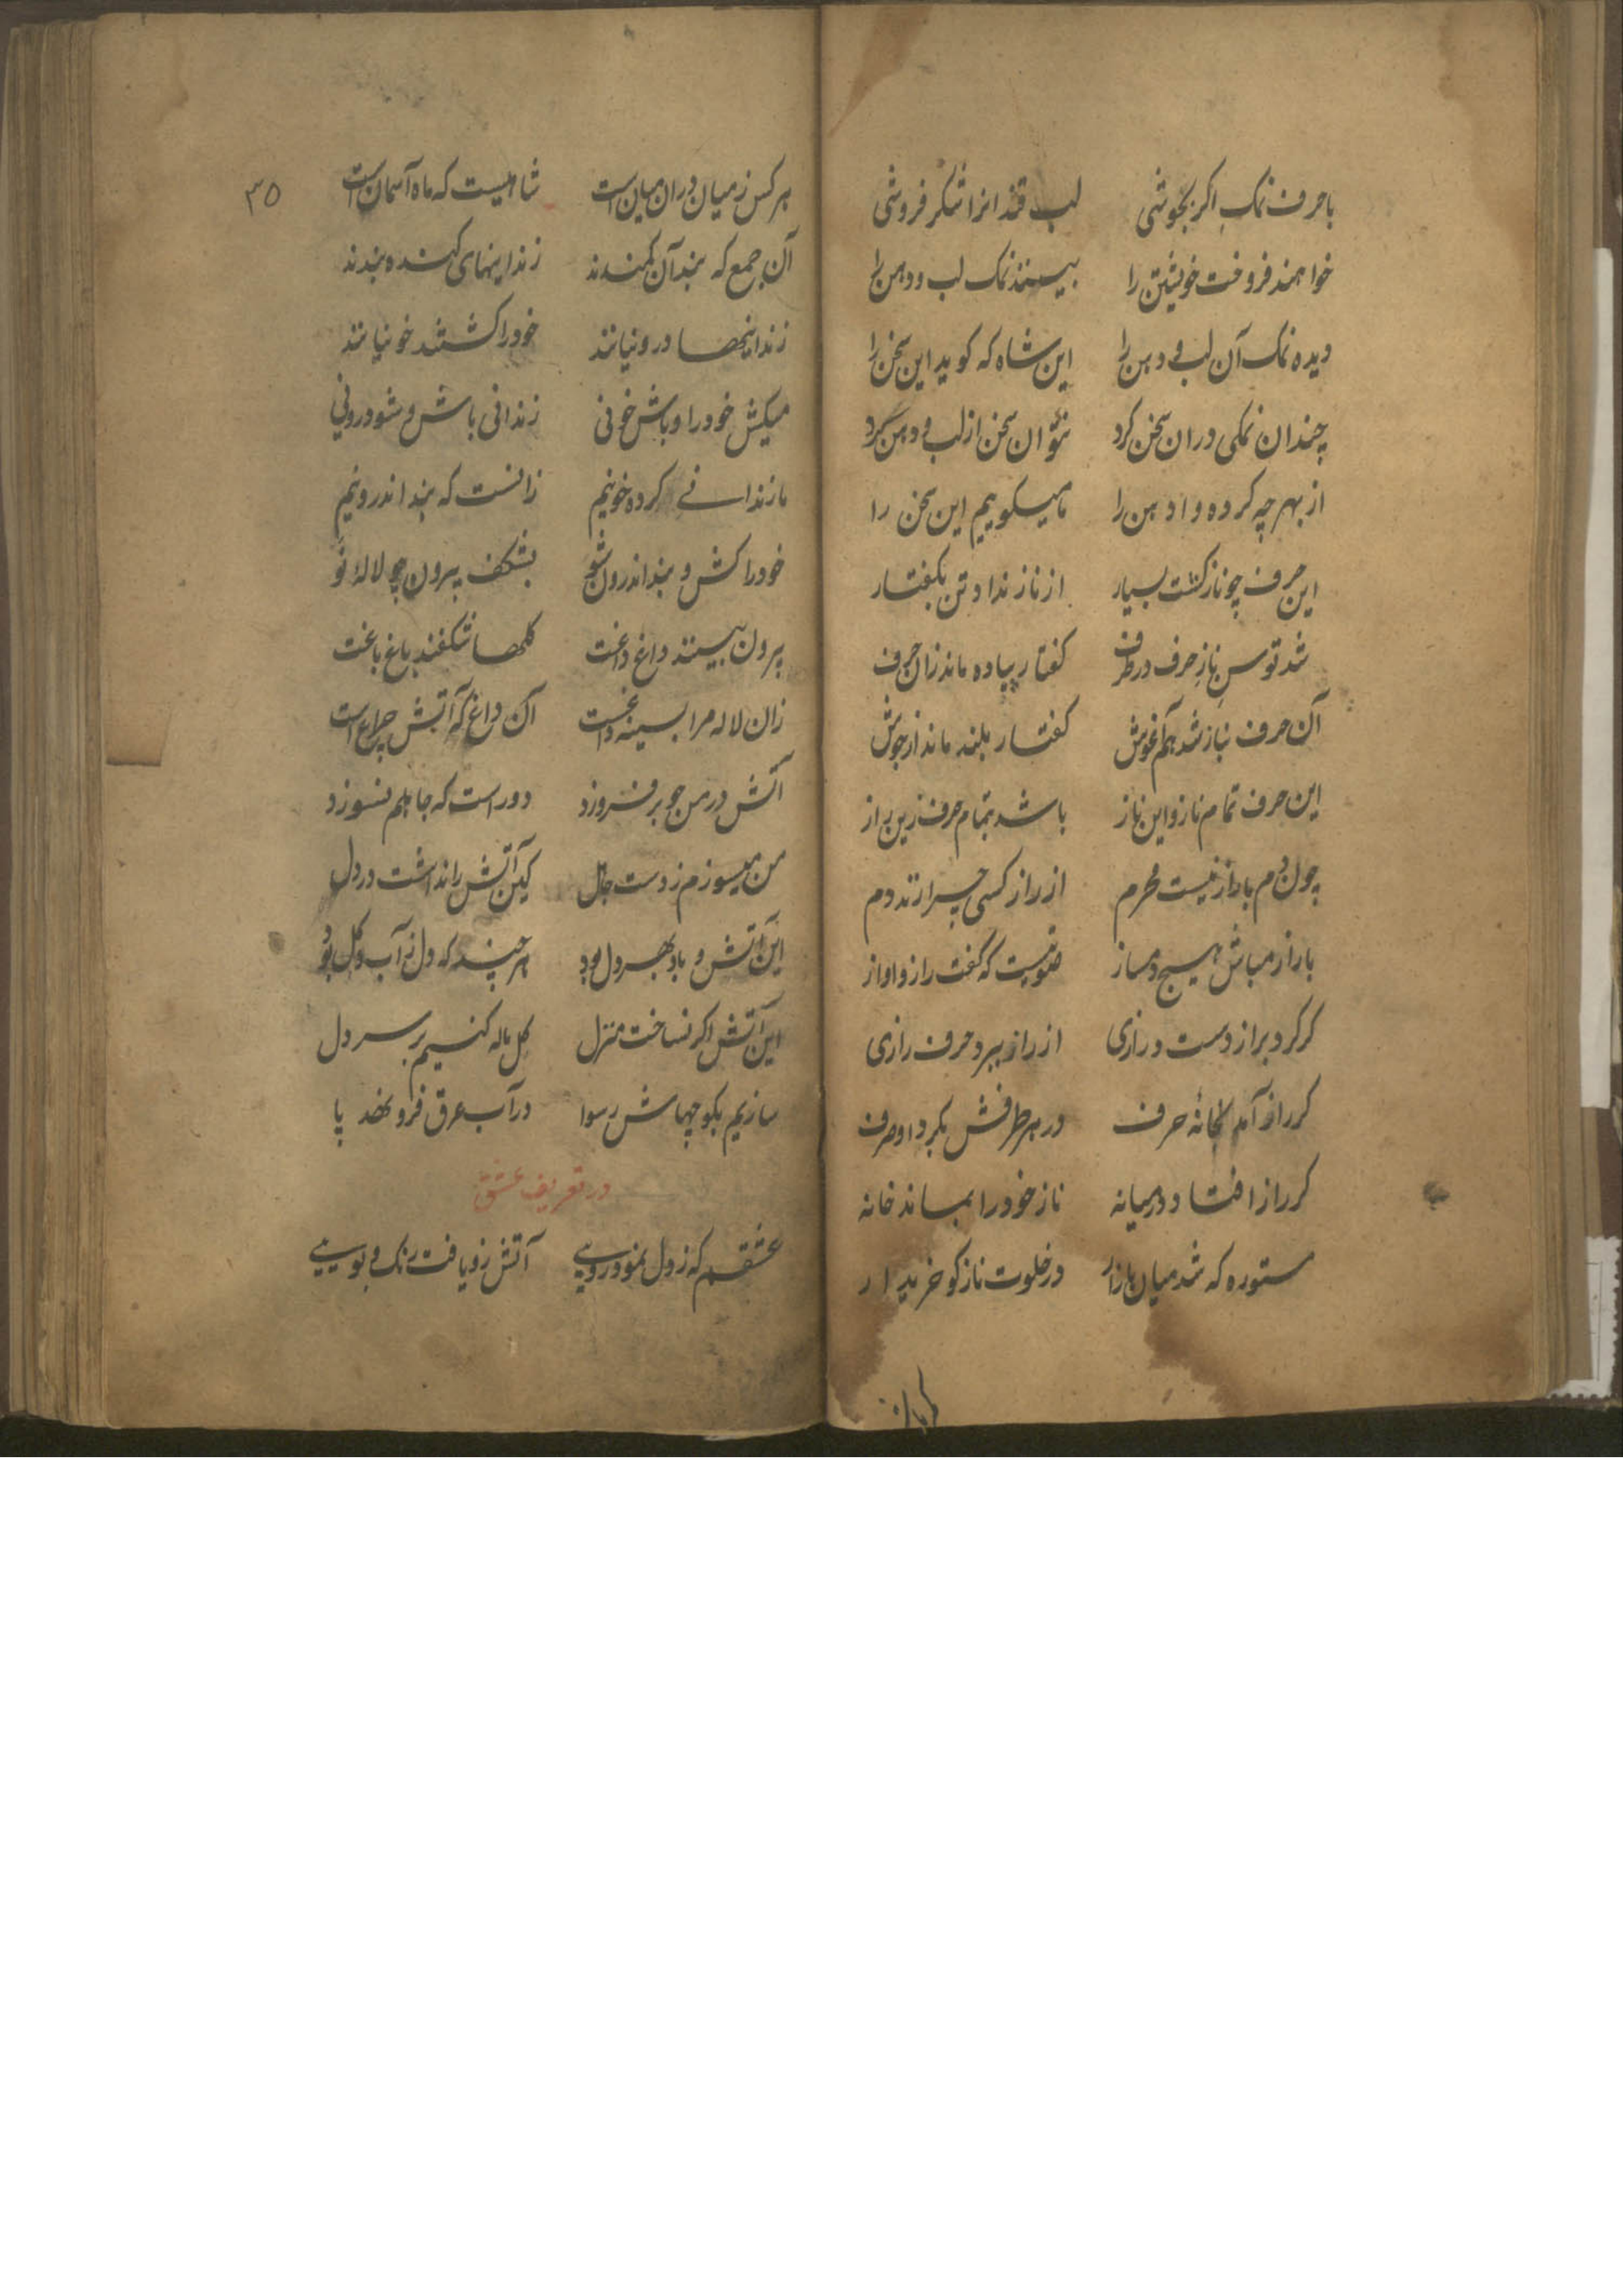 با حرف نمک اگر بجوشی لب قند انرا شکر فروشی
خواهند فروخت خویشتن را بیسند نمک لب و دهن را
دیده نمک آن لب و دهن را این شاه که کوید این سخن را
چندان نمکی دران سخن کرد نتوان سخن از لب و دهن کرد
از بهر چه کرده وا دهن را تا میکوییم این سخن را
این حرف چو ناز کشت بسیار از ناز نداد تن بکفتار
شد توسن ناز حرف در حرف کفتار پیاده ماند زان حرف
آن حرف بناز شد هم آغوش کفتار بلند ماند از جوش
این حرف تمام ناز و این ناز باشد بتمام حرف زین راز
چون دم با راز نیست محرم از راز کسی چرا زند دم
با راز مباش هیچ دمساز صوتیست که گفت راز و اواز
کر کرد براز دست درازی از راز ببرد حرف رازی
کر راز آمد بخانهٔ حرف در هر طرفش بکرد او صرف
کر راز افتاد در میانه ناز خود را بماند خانه
ستوره که شد میان بازار در خلوت ناز کو خریدار
۳۵
هر کس ز میان دران میان است شاهیست که ماه آسمان است
آن جمع که بند آن کمندند زندانیهای کنده بندند
زندانیها درونیانند خود را کشتند خونیانند
میکش خود را و باش خونی زندانی باش و شو درونی
ما زندانے کرده خونیم زانست که بند اندرونیم
خود را کش و بند اندرون شو بشکف بیرون چو لالهٔ نو
بیرون بیسند داغ داغت کلها شکفند باغ باغت
زان لاله مرا بسینه داغست آن داغ که آتش چراغ است
آتش در من چو برفروزد دور است که جاهلم نسوزد
من میسوزم ز دست جاهل کین آتش را نداشت در دل
این آتش و باد بهر دل بود هر چند که دل ز آب و کل بود
این آتش اکر نساخت منزل کل ماله کنیم بر سر دل
سازیم بکوچهاش رسوا در آب عرق فرو نهد پا
در تعریف عشق
عشقم که ز دل نمود رویے آتش زو یافت رنک و بوییے